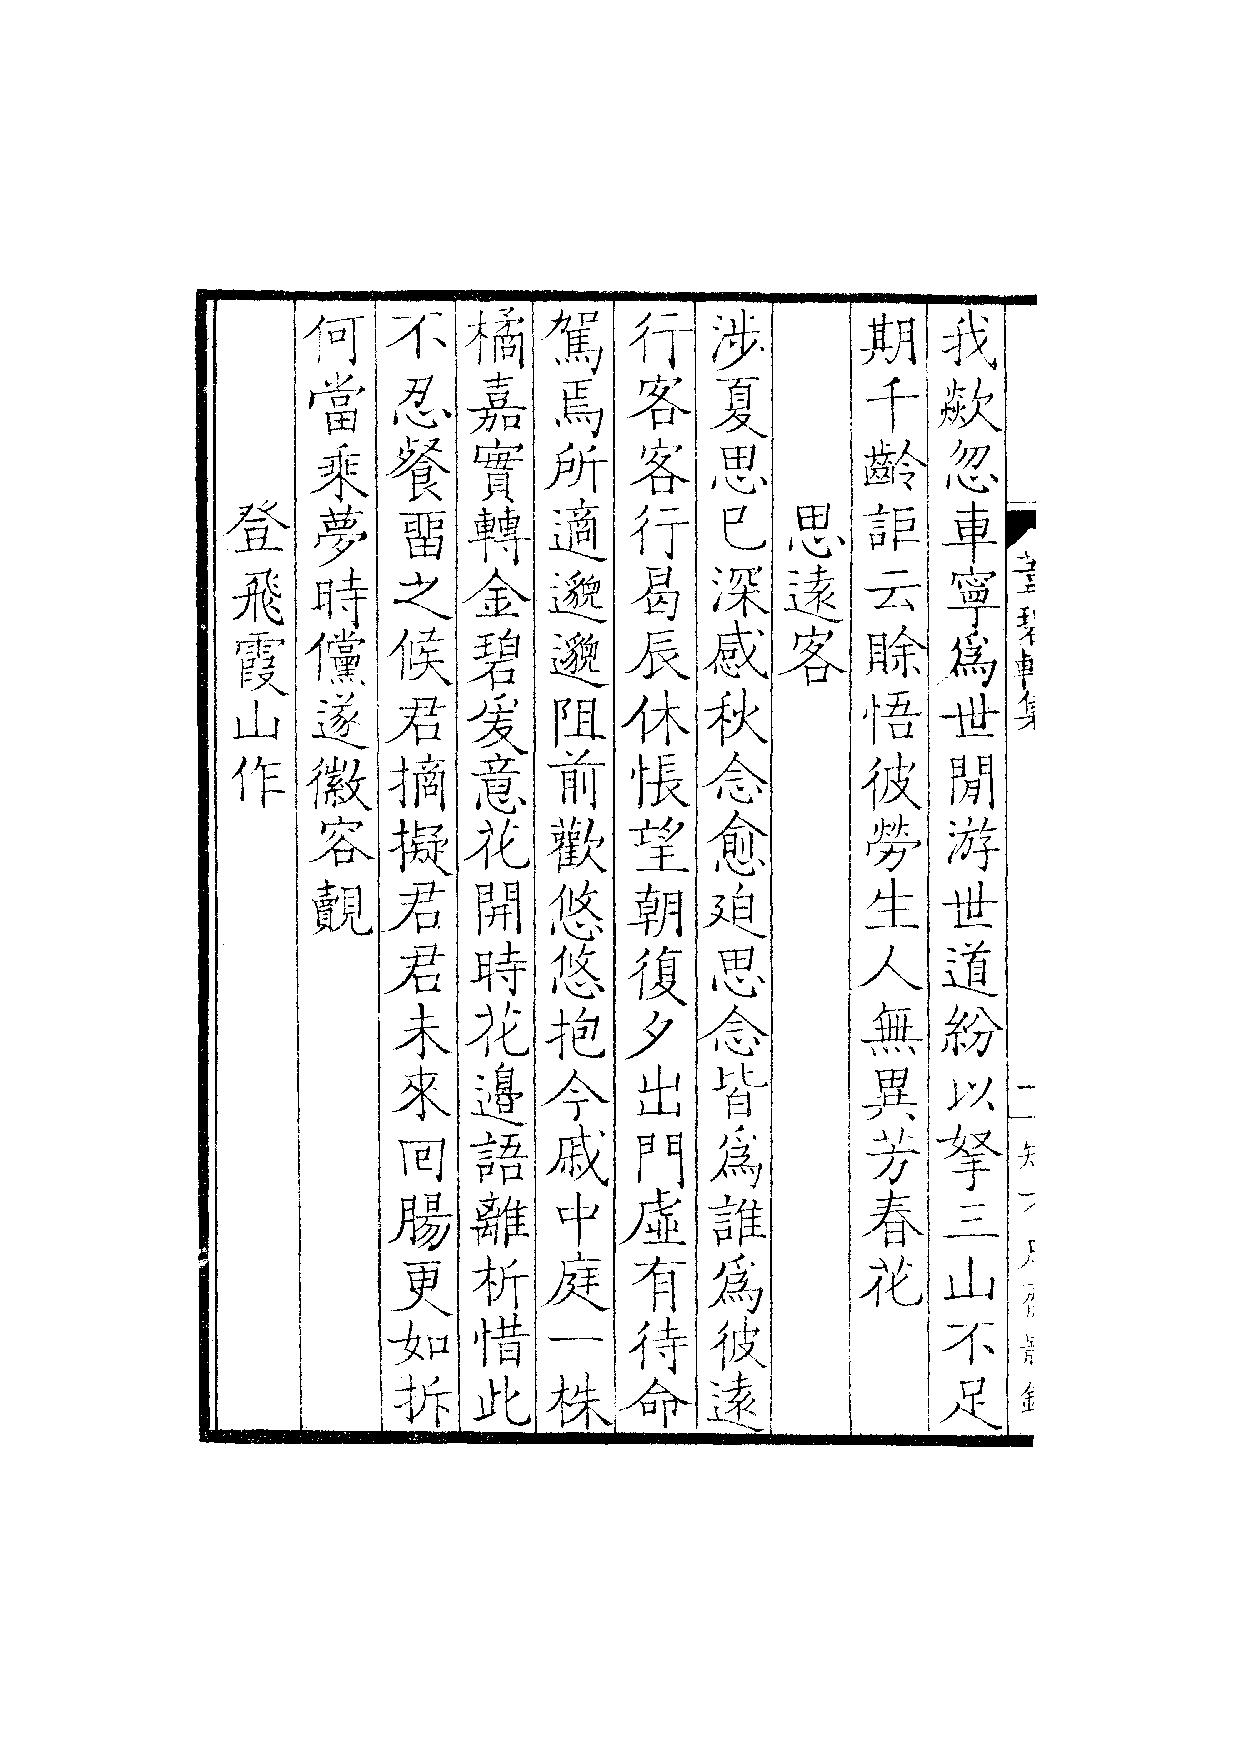 我歘忽車寧爲世閒游世道紛以拏三山不足
期千齡詎云賖悟彼勞生人無異芳春花
思遠客
涉夏思已深感秋念愈廹思念皆爲誰爲彼遠
行客客行曷辰休悵望朝復夕出門虛有待命
駕焉所適邈邈阻前歡悠悠抱今戚中庭一株
橘嘉實轉金碧爰意花開時花邊語離析惜此
不忍餐畱之候君摘擬君君未來回腸更如拆
何當乘夢時儻遂徽容覿
登飛霞山作
碧軒集